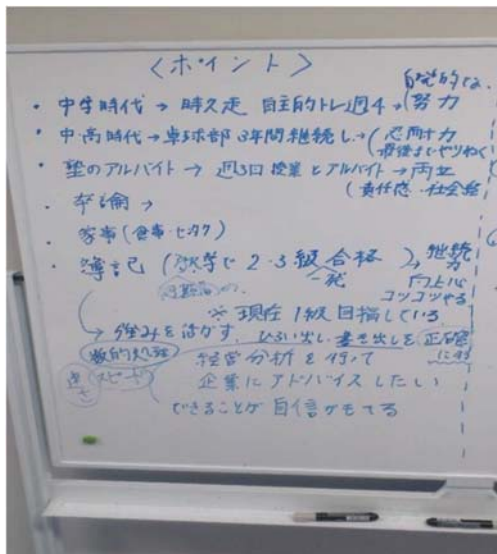 〈ポイント〉
自発的な
・中学時代 → 持久走 自主的トレ週4 → 努力
・中・高時代 → 卓球部 3年間継続し → 忍耐力
最後までやりぬく
・塾のアルバイト → 週3回 授業とアルバイト → 両立
(責任感・社会経
・卒論 →
家事(食事・センタク)
・簿記 (独学で 2・3級 合格) 継続力
一発
向上心
コツコツやる
※現在 1級目指している
→ 強みを活かす、ひろい出し 書き出しを 正確
に する
数的処理
経営分析を行って
速さ スピード
企業にアドバイスしたい
できることが 自信がもてる